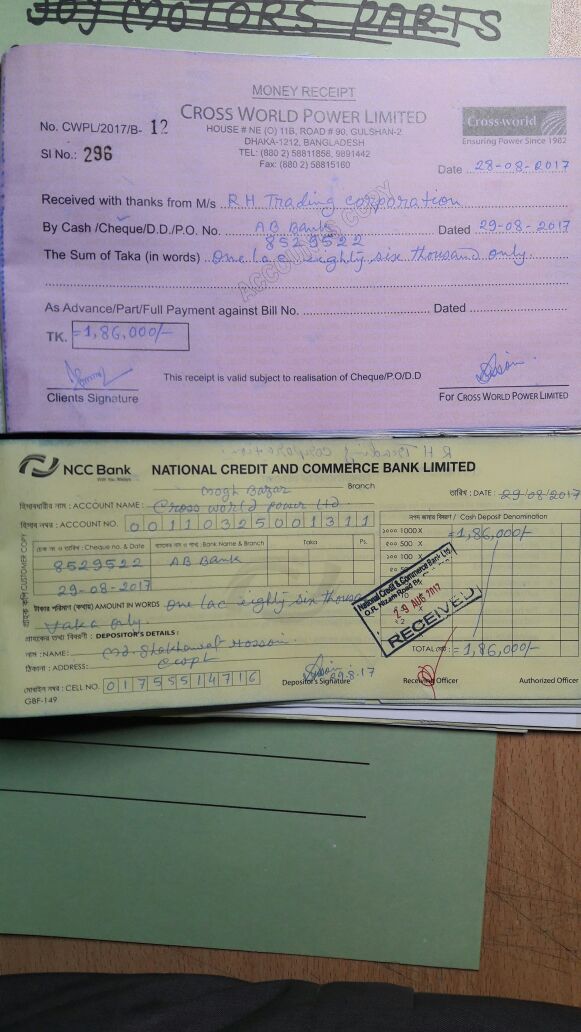 JOJ MOTORS PARTS
MONEY RECEIPT
CROSS WORLD POWER LIMITED
HOUSE # NE (O) 11B, ROAD # 90, GULSHAN-2
DHAKA-1212, BANGLADESH
TEL: (880 2) 58811858, 9891442
Fax: (880 2) 58815160
Cross-world
Ensuring Power Since 1982
No. CWPL/2017/B- 12
Sl No.: 296
Date 28-08-2017
Received with thanks from M/s R.H Trading corporation
By Cash /Cheque/D.D./P.O. No. AB Bank 8529522 Dated 29-08-2017
The Sum of Taka (in words) One lac eighty six thousand only.
ACCOUNTS COPY
As Advance/Part/Full Payment against Bill No. Dated
TK. =1,86,000/-
This receipt is valid subject to realisation of Cheque/P.O/D.D
Clients Signature
For CROSS WORLD POWER LIMITED
R H Trading corporation
NCC Bank
NATIONAL CREDIT AND COMMERCE BANK LIMITED
Mogh Bazar Branch
তারিখ : DATE : 29/08/2017
হিসাবধারীর নাম : ACCOUNT NAME : Cross world power Ltd.
হিসাব নম্বর : ACCOUNT NO. 00110325001311
নগদ জমার বিবরণ / Cash Deposit Denomination
চেক নং ও তারিখ : Cheque no. & Date
ব্যাংকের নাম ও শাখা : Bank Name & Branch
Taka
Ps.
8529522 AB Bank
29-08-2017
১০০০ 1000 X =1,86,000/-
৫০০ 500 X
১০০ 100 X
National Credit & Commerce Bank Ltd
O.R. Nizam Road Br.
29 AUG 2017
RECEIVED
টাকার পরিমাণ (কথায়) AMOUNT IN WORDS One lac eighty six thousand
taka only.
গ্রাহক কপি CUSTOMER COPY
DEPOSITOR'S DETAILS :
নাম : NAME: Md. Shakhawat Hossain.
ঠিকানা : ADDRESS: CWPL
TOTAL = 1,86,000/-
মোবাইল নম্বর : CELL NO. 01755514716
29.8.17
Depositor's Signature
Receiving Officer
Authorized Officer
GBF-149